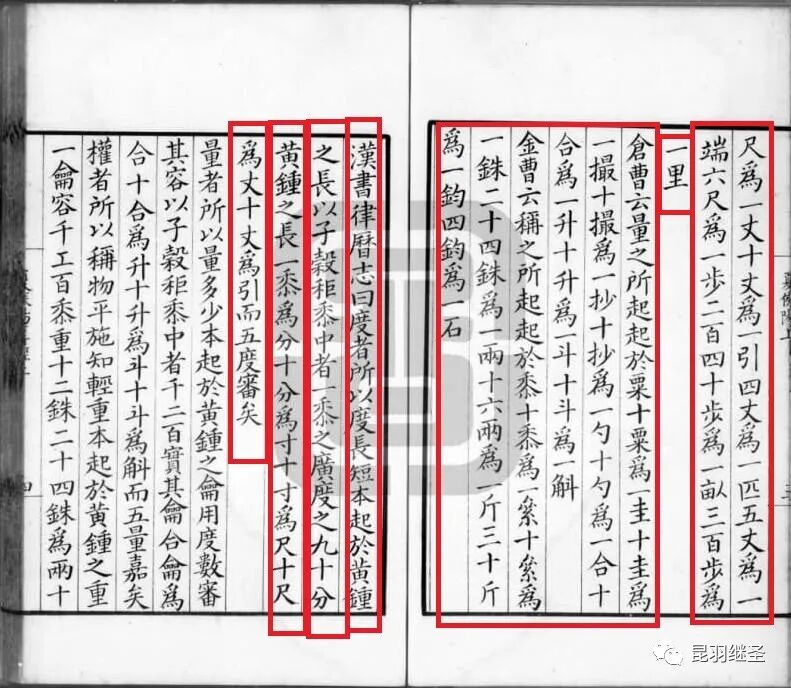 尺爲一丈十丈爲一引四丈爲一匹五丈爲一
端六尺爲一步二百四十步爲一畝三百步爲
一里
倉曹云量之所起起於粟十粟爲一圭十圭爲
一撮十撮爲一抄十抄爲一勺十勺爲一合十
合爲一升十升爲一斗十斗爲一斛
金曹云稱之所起起於黍十黍爲一絫十絫爲
一銖二十四銖爲一兩十六兩爲一斤三十斤
爲一鈞四鈞爲一石
漢書律曆志曰度者所以度長短本起於黄鍾
之長以子穀秬黍中者一黍之廣度之九十分
黄鍾之長一黍爲分十分爲寸十寸爲尺十尺
爲丈十丈爲引而五度審矣
量者所以量多少本起於黄鍾之龠用度數審
其容以子穀秬黍中者千二百實其龠合龠爲
合十合爲升十升爲斗十斗爲斛而五量嘉矣
權者所以稱物平施知輕重本起於黄鍾之重
一龠容千二百黍重十二銖二十四銖爲兩十
昆羽继圣